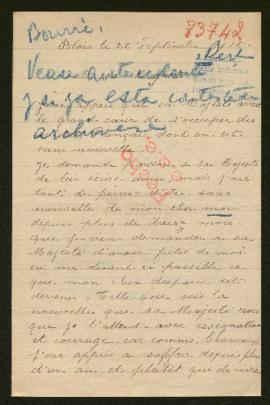 Bourré.
83742
Blois le 22 Septembre 1915
Véase antecedente
y si ya está contestado
archívese
le grand cœur de s'occuper des
dont on est
sans nouvelle
Je demande pardon à sa Majesté
de lui écrire mais j'ai
tant de peine d'être sans
nouvelle de mon cher mari
depuis plus de treize mois
que je viens demander à sa
Majesté d'avoir pitié de moi
en me disant si possible ce
que mon disparu est
devenu. Telle que soit la
nouvelle que sa Majesté
que je l'attend avec résignation
et courage, car comme beaucoup
j'ai appris à souffrir depuis plus
d'un an, et plutôt que de vivre